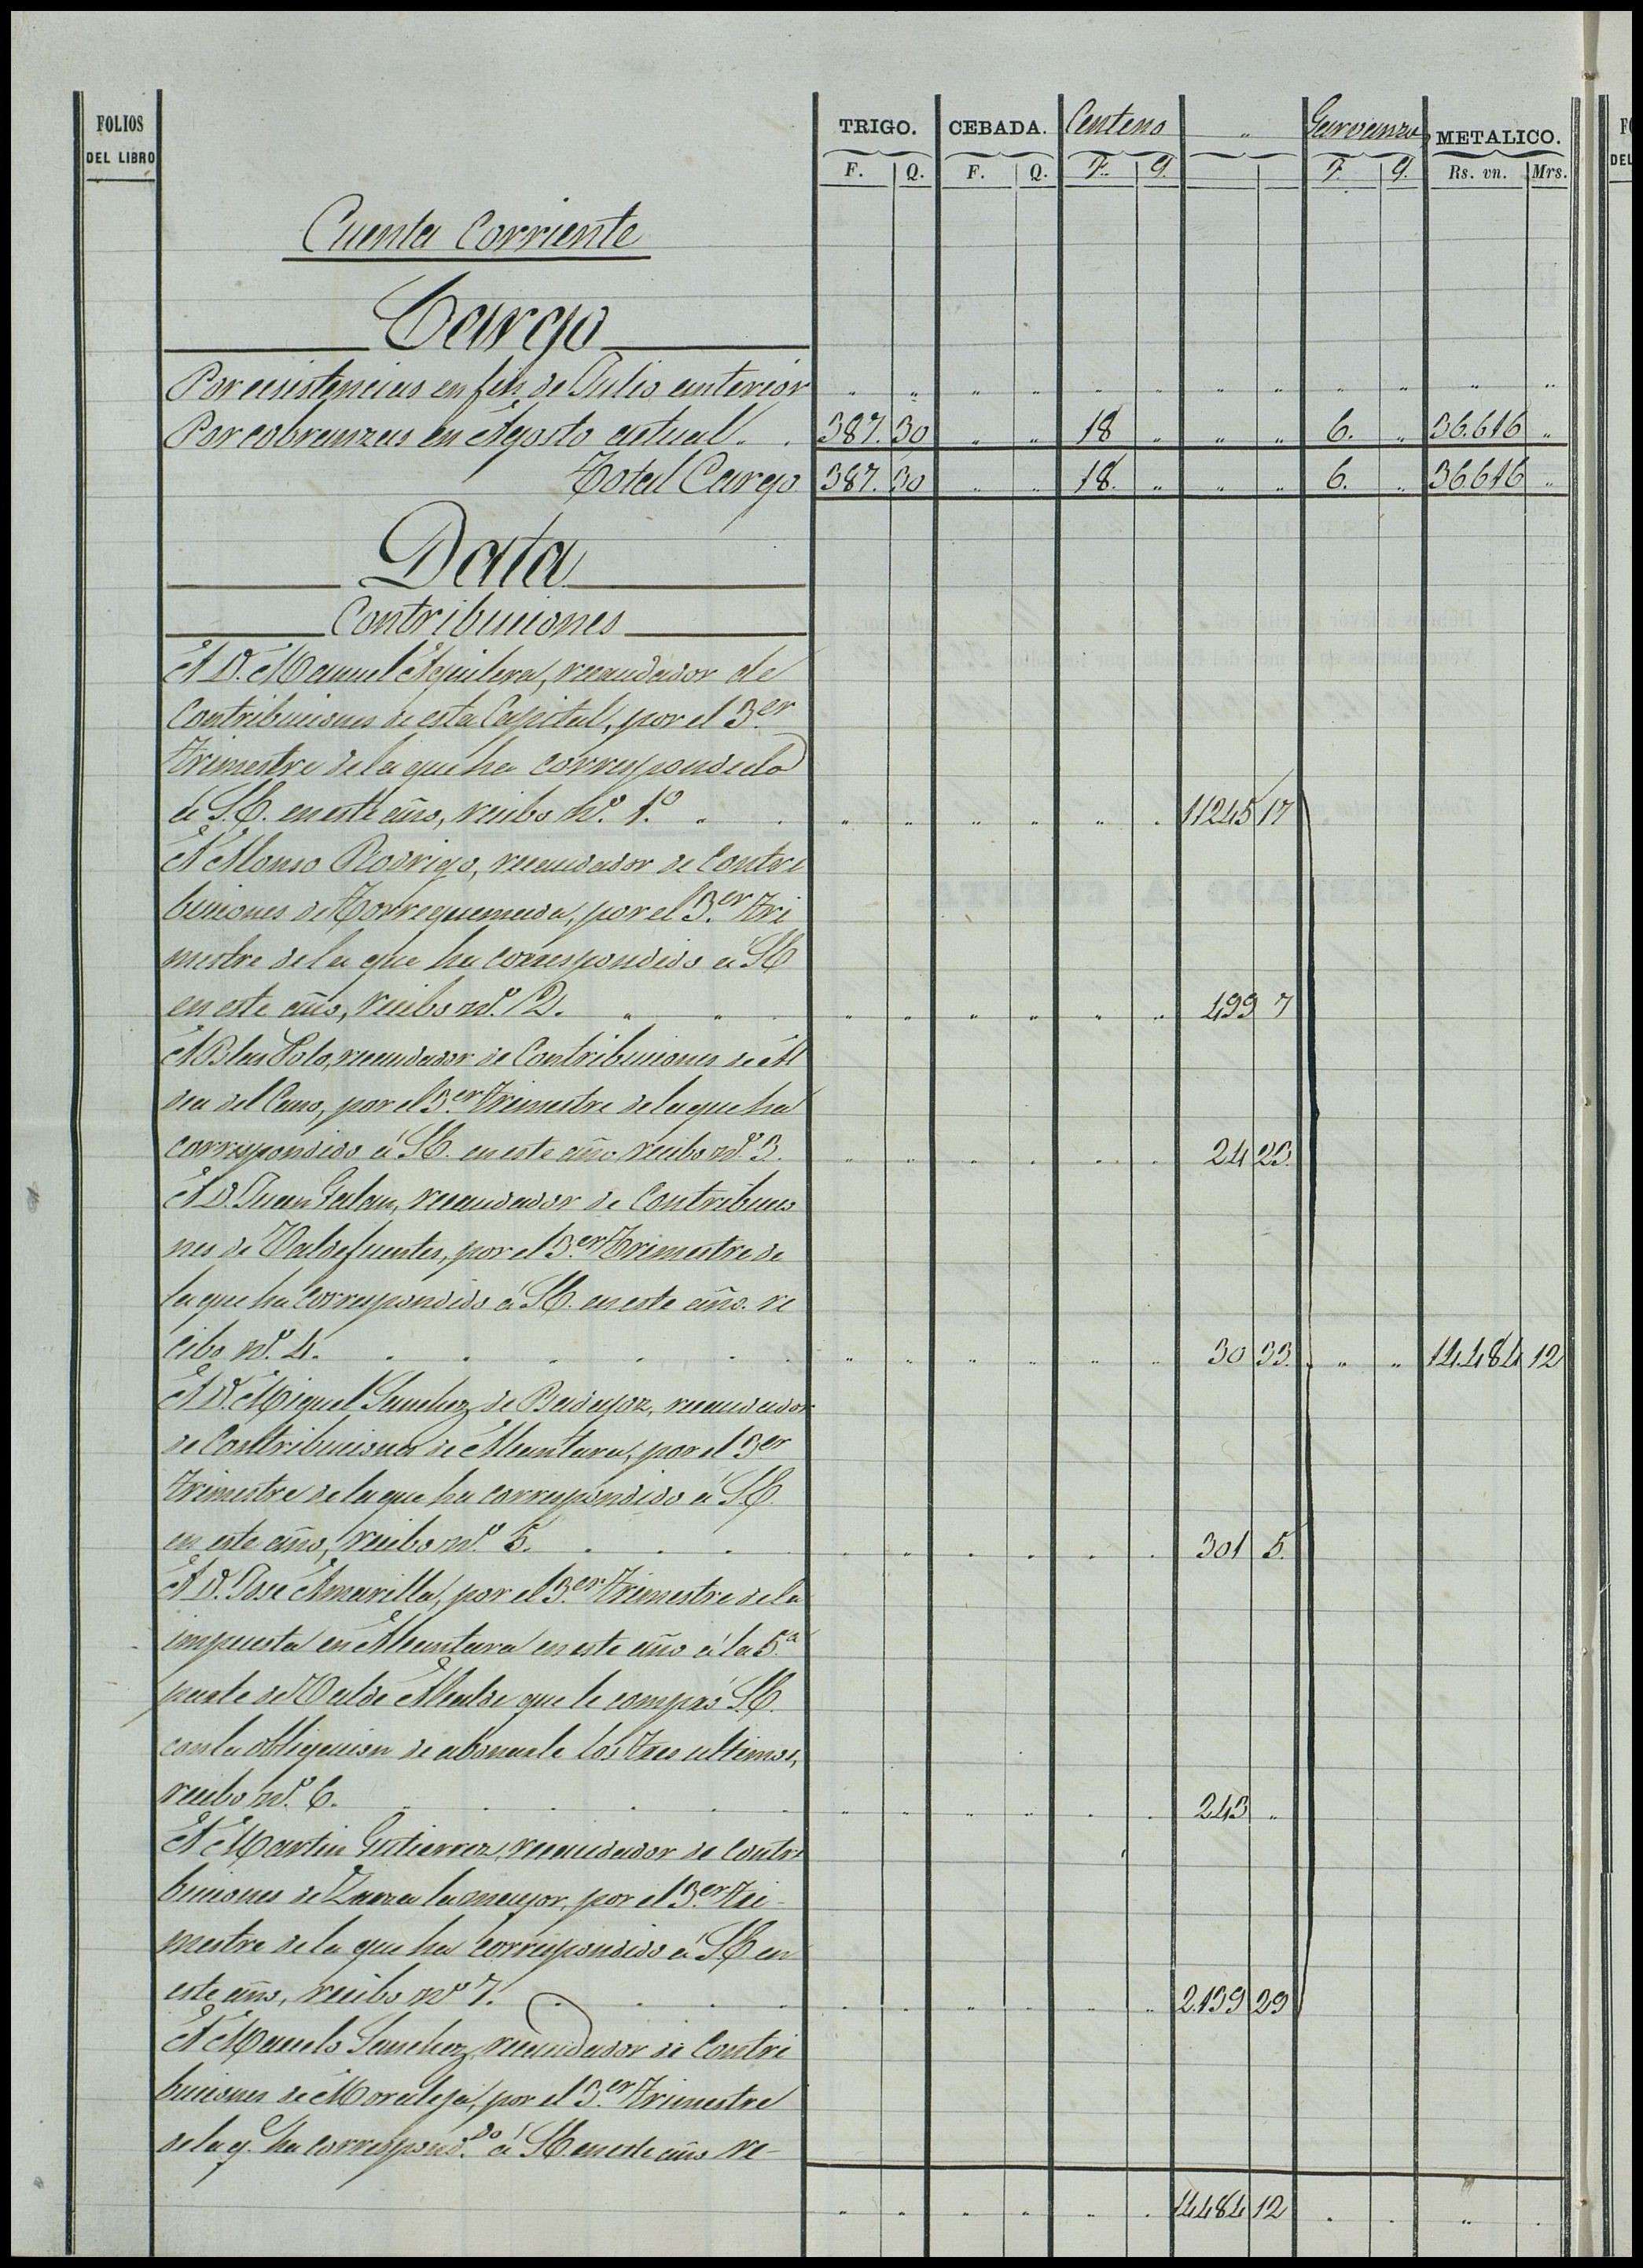 FOLIOS
DEL LIBRO
TRIGO. CEBADA. Centeno " Garvanzos METALICO.
F. Q. F. Q. F. Q. F. Q. Rs. vn. Mrs.
Cuenta Corriente
Cargo
Por existencias en fin de Julio anterior " " " " " " " " " " " "
Por cobranzas en Agosto actual . . 387. 30 " " 18 " " " 6. " 36.616 "
Total Cargo 387. 30 " " 18. " " " 6. " 36.616 "
Data
Contribuciones
A D. Manuel Aguilera, recaudador de
Contribuciones de esta Capital, por el 3er
trimestre de la que ha correspondido
á S.E. en este año, recibo nº. 1º. " " " " " " 11245 17
A Alonso Rodrigo, recaudador de Contri
buciones de Torrequemada, por el 3er tri
mestre de la que ha correspondido á SE
en este año, recibo nº. 2. " " " " " " 499 7
A Blas Polo, recaudador de Contribuciones de Al
dea del Cano, por el 3er trimestre de la que ha
correspondido á SE. en este año recibo nº. 3. " " " " " " 24 23.
A D. Juan Galan, recaudador de Contribucio
nes de Valdefuentes, por el 3er Trimestre de
la que ha correspondido á SE. en este año. re
cibo nº. 4. " " " " " " 30 33. " " 14.484 12
A D. Miguel Sanchez de Badajoz, recaudador
de Contribuciones de Alcantara, por el 3er
trimestre de la que ha correspondido á S.E.
en este año, recibo nº. 5. " " " " " " 301 5.
A D. Jose Amarilla, por el 3er trimestre de la
impuesta en Alcantara en este año á la 5.ª
parte de Valde Alcalde que le compró S.E.
con la obligacion de abonarle los tres ultimos,
recibo nº. 6. " " " " " " 243 "
A Martin Gutierrez, recaudador de Contri
buciones de Zarza la mayor, por el 3er tri-
mestre de la que ha correspondido á SE en
este año, recibo nº 7. " " " " " " 2.139 29
A Marcelo Sanchez, recaudador de Contri
buciones de Moraleja, por el 3er trimestre
de la q.e ha correspond.do á SE. en este año re-
" " " " " " 14484 12 " " " "